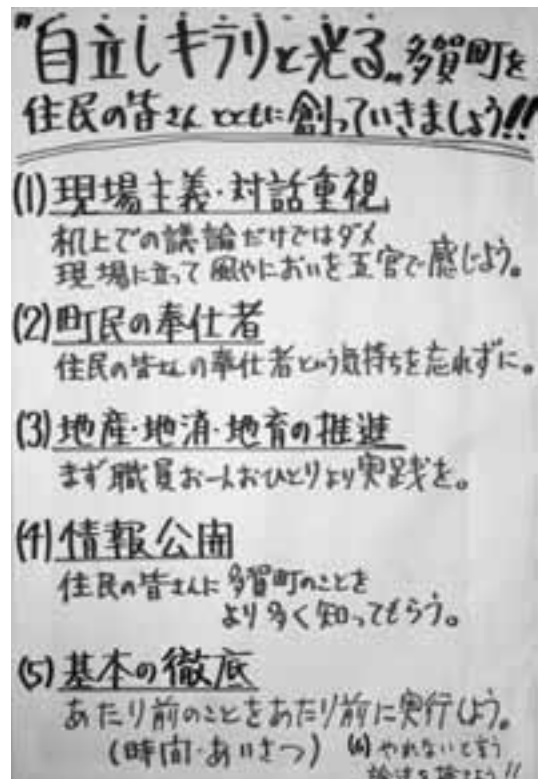 "自立しキラリと光る"多賀町を
住民の皆さんとともに創っていきましょう!!
(1)現場主義・対話重視
机上での議論だけではダメ
現場に立って風やにおいを五官で感じよう。
(2)町民の奉仕者
住民の皆さんの奉仕者という気持ちを忘れずに。
(3)地産・地消・地育の推進
まず職員お一人おひとりより実践を。
(4)情報公開
住民の皆さんに多賀町のことを
より多く知ってもらう。
(5)基本の徹底
あたり前のことをあたり前に実行しよう。
(時間・あいさつ) (6)やれないと言う